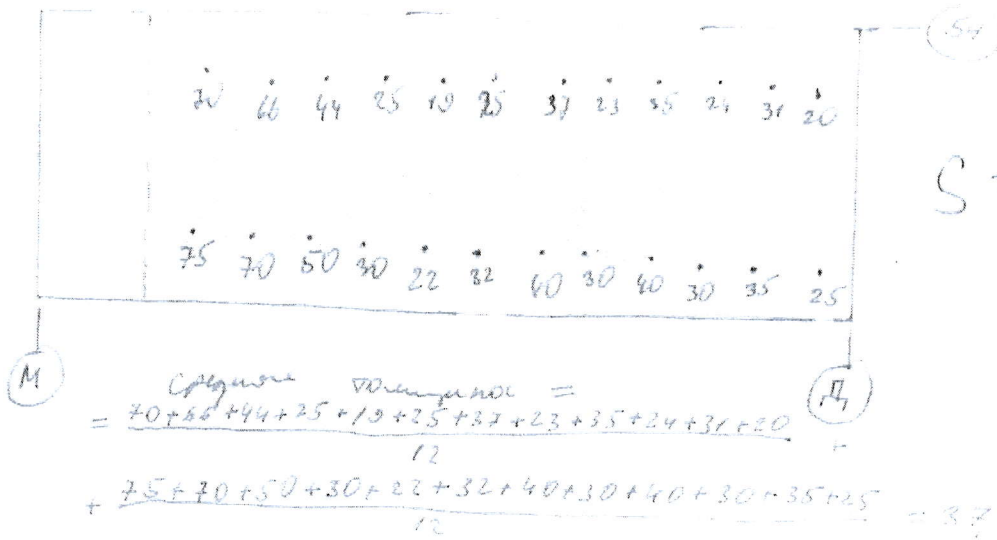 70 66 44 25 19 25 37 23 35 24 31 20
S
75 70 50 30 22 32 40 30 40 30 35 25
М Д
средняя толщина =
= 70+66+44+25+19+25+37+23+35+24+31+20
12 +
+ 75+70+50+30+22+32+40+30+40+30+35+25 = 37
12